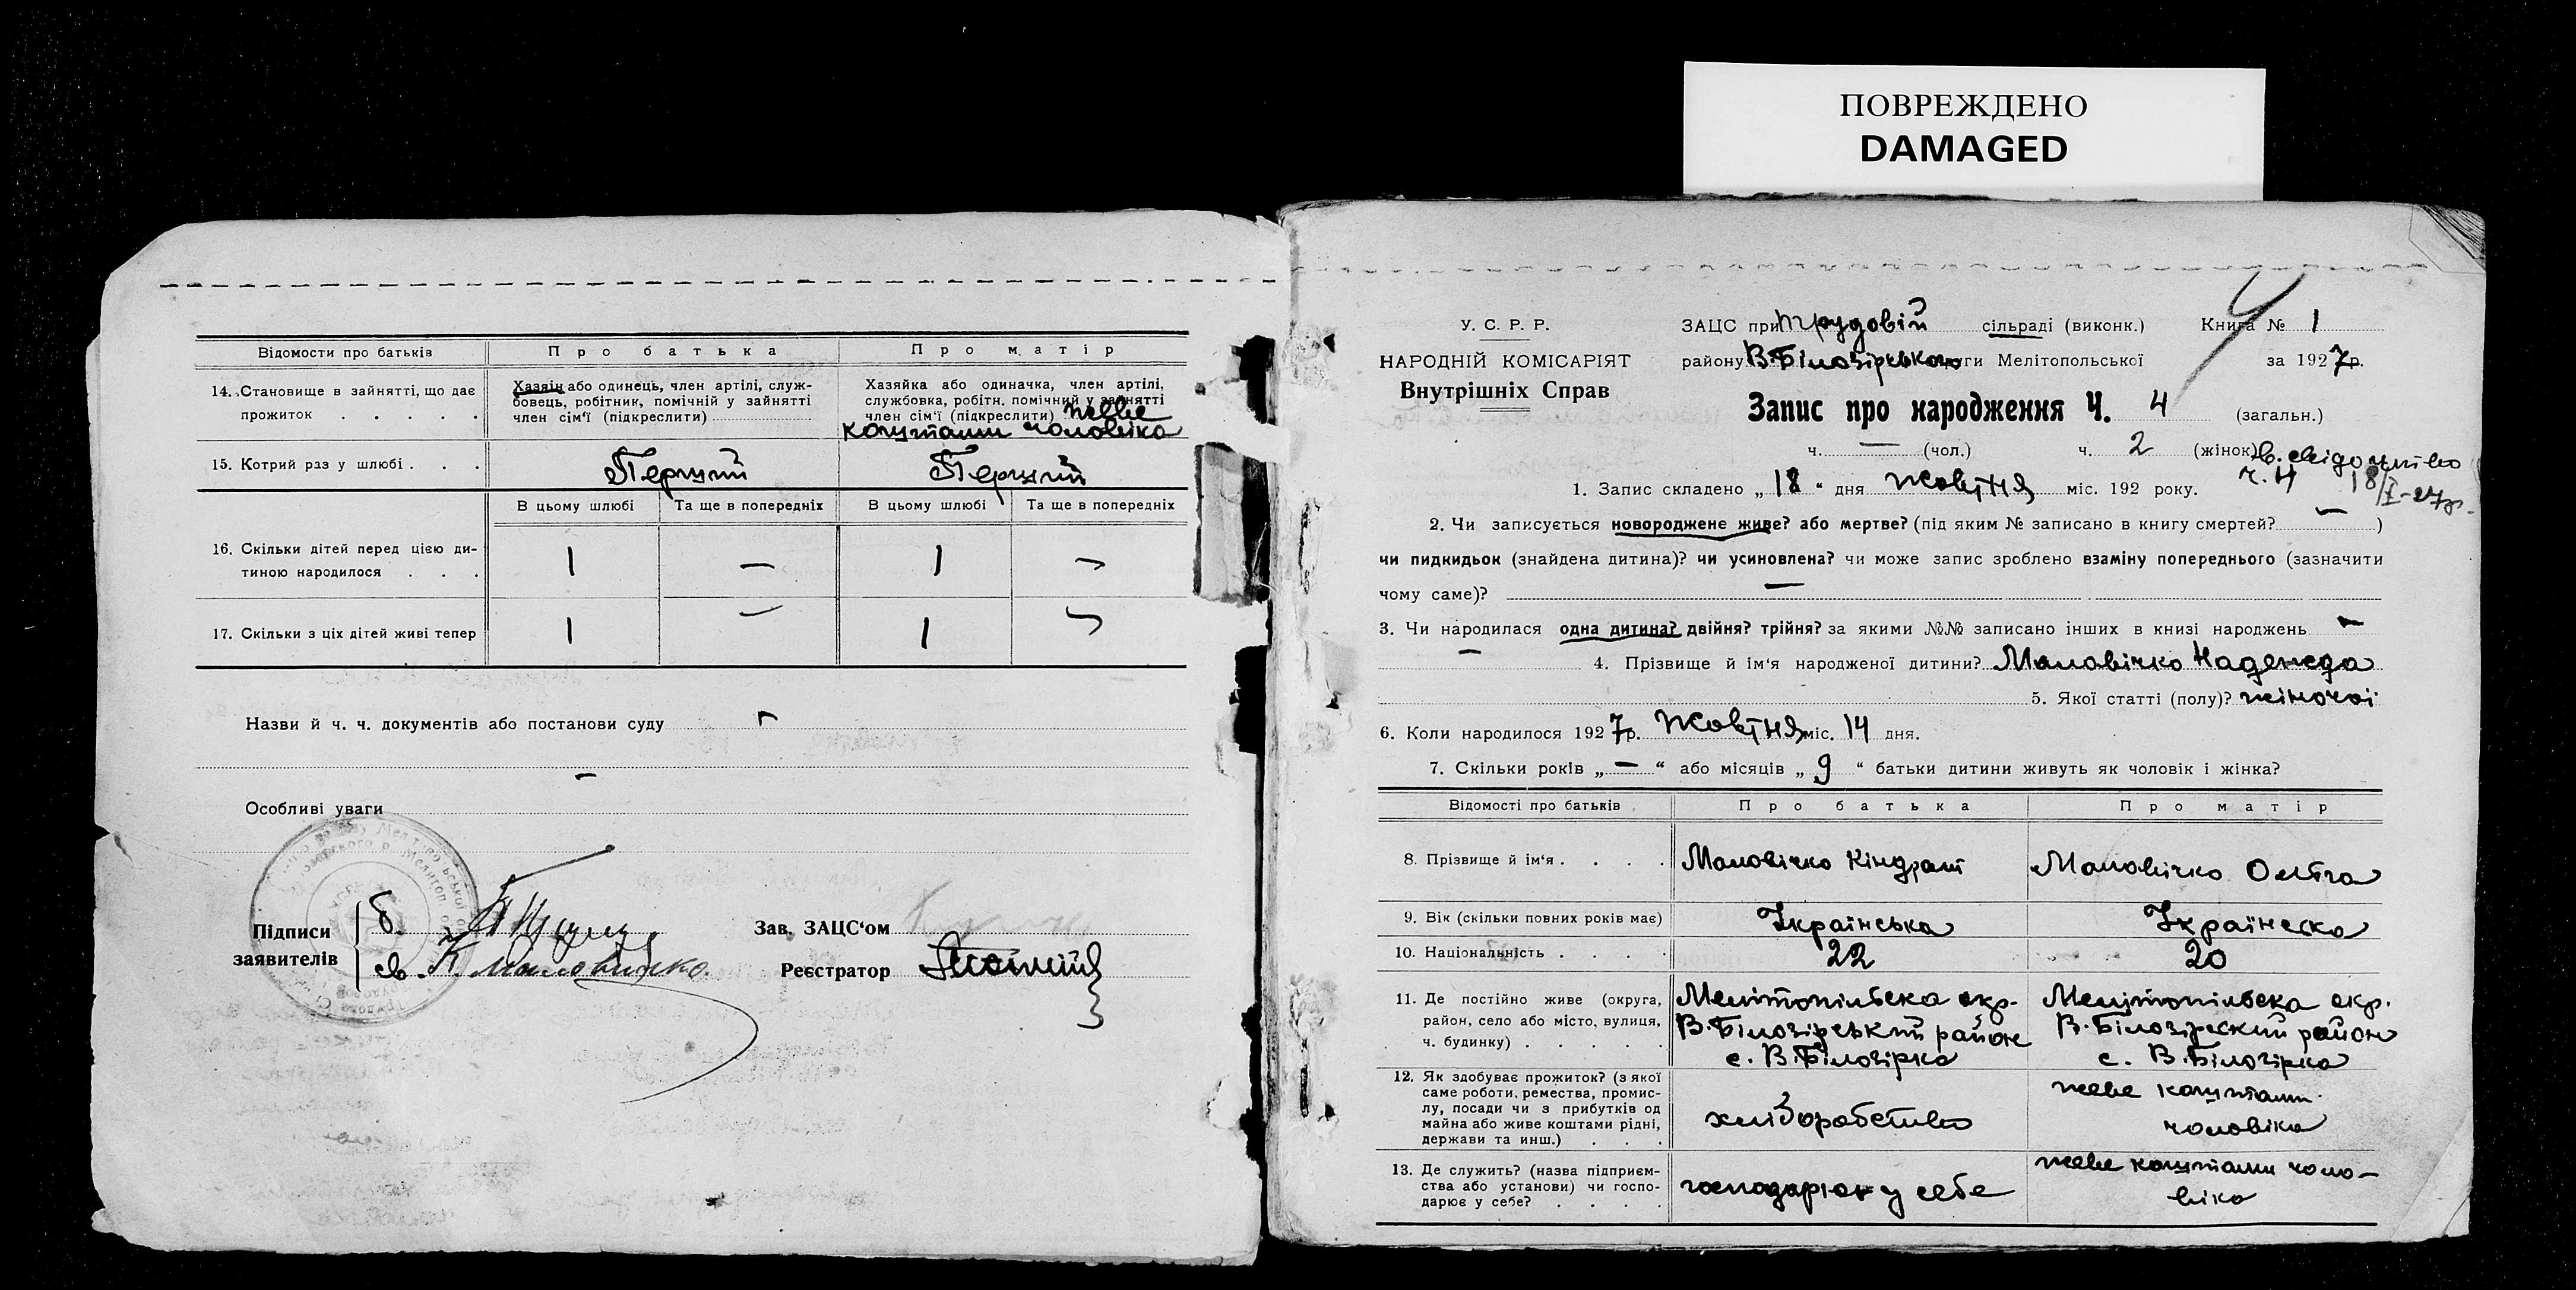 ПОВРЕЖДЕНО
DAMAGED
Відомости про батьків
Про батька
Про матір
14. Становище в зайнятті, що дає прожиток . . . . .
Хазяїн або одинець, член артілі, служ-
бовець, робітник, помічній у зайнятті
член сім'ї (підкреслити)
Хазяйка або одиначка, член артілі,
службовка, робітн. помічний у зайнятті
член сім'ї (підкреслити) живе
коштами чоловіка
15. Котрий раз у шлюбі . . .
Перший
Перший
В цьому шлюбі
Та ще в попередніх
В цьому шлюбі
Та ще в попередніх
16. Скільки дітей перед цією ди-
тиною народилося . . .
1 — 1 —
17. Скільки з ціх дітей живі тепер
1 — 1 —
Назви й ч. ч. документів або постанови суду —
—
Особливі уваги
Підписи
заявителів
б.
св. К. Маловичко.
Зав. ЗАЦС'ом
Реєстратор
У. С. Р. Р.
НАРОДНІЙ КОМІСАРІЯТ
Внутрішніх Справ
ЗАЦС при Трудовій сільраді (виконк.) Книга № 1
району В. Білозірського округи Мелітопольської за 1927р.
Запис про народження Ч. 4 (загальн.)
ч. — (чол.) ч. 2 (жінок)
в. свідоцтво
ч. 4 18/I-27р.
1. Запис складено „18“ дня жовтня міс. 192 року.
2. Чи записується новороджене живе? або мертве? (під яким № записано в книгу смертей? — )
чи пидкидьок (знайдена дитина)? чи усиновлена? чи може запис зроблено взаміну попереднього (зазначити
чому саме)? —
3. Чи народилася одна дитина? двійня? трійня? за якими №№ записано інших в книзі народжень —
— 4. Прізвище й ім'я народженої дитини? Маловічко Надежда
5. Якої статті (полу)? жіночої
6. Коли народилося 1927р. жовтня міс. 14 дня.
7. Скільки років „—“ або місяців „9“ батьки дитини живуть як чоловік і жінка?
Відомості про батьків
Про батька
Про матір
8. Прізвище й ім'я . . . .
Маловічко Кіндрат
Маловічко Ольга
9. Вік (скільки повних років має)
Українська
Українська
10. Національність . . . .
22
20
11. Де постійно живе (округа,
район, село або місто, вулиця,
ч. будинку) . . . . .
Мелітопільска окр.
В. Білозірський район
с. В. Білозірка
Мелітопільська окр.
В. Білозірский район
с. В. Білозірка
12. Як здобуває прожиток? (з якої
саме роботи, ремества, промис-
лу, посади чи з прибутків од
майна або живе коштами рідні,
держави та инш.) . . .
хліборобство
живе коштами
чоловіка
13. Де служить? (назва підприєм-
ства або установи) чи госпо-
дарює у себе? . . . .
господарює у себе
живе коштами чоло-
віка